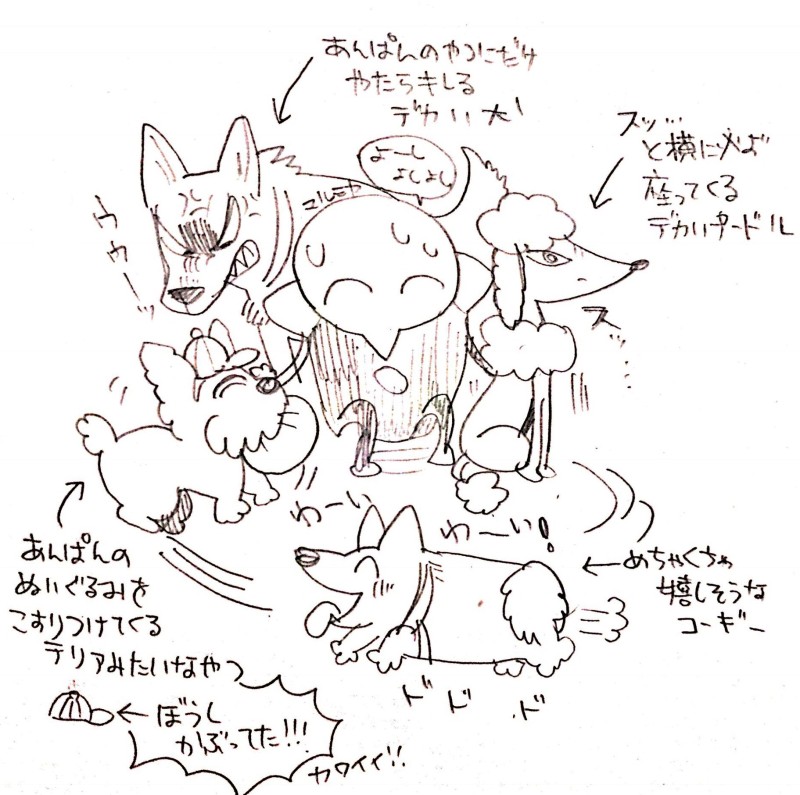 あんぱんのやつにだけ
やたらキレる
デカい犬
よーし
よしよし
スッ…
と横に必ず
座ってくる
デカいプードル
ウゥー
ス…
わーい
わーい!
あんぱんの
ぬいぐるみを
こすりつけてくる
テリアみたいなやつ
めちゃくちゃ
嬉しそうな
コーギー
ド ド ド
ぼうし
かぶってた!!!
カワイイ!!